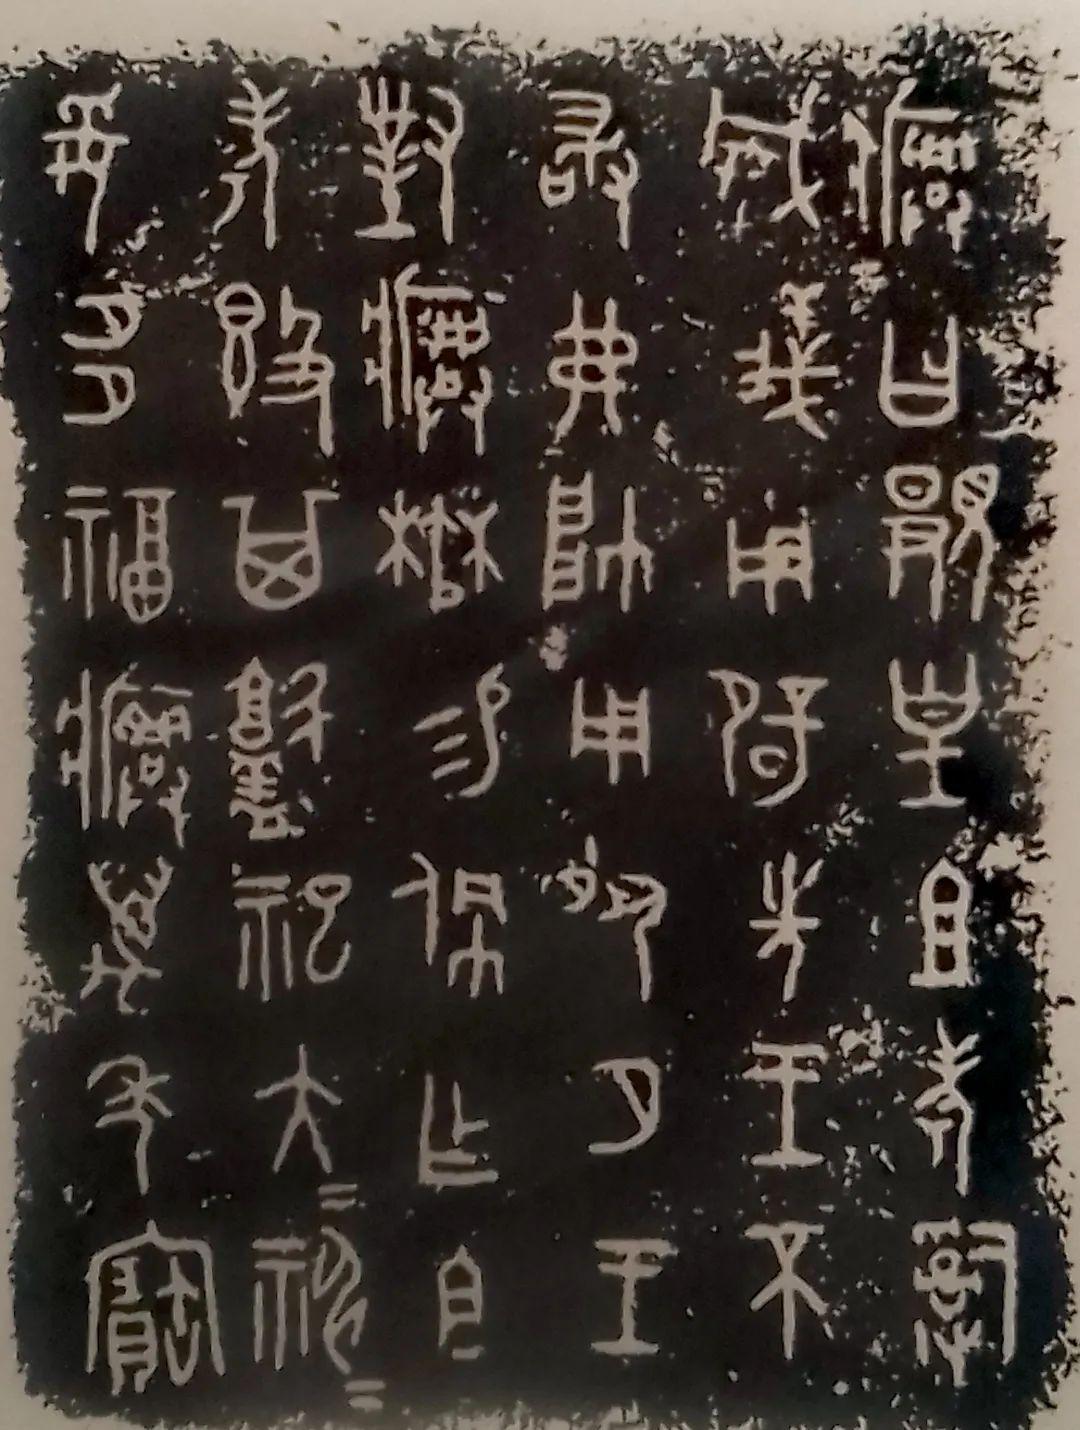 𤼈曰覭皇且考𤔲
威義用辟先王不
敢弗帥用夙夕王
對𤼈楙易佩乍且
考𣪘其祀大=神=
妥多福𤼈萬年寶